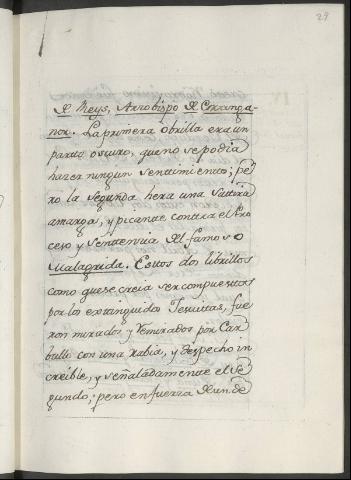 29
de Reys, Arzobispo de Cranga-
nor. La primera obrilla era un
parto oscuro, que no se podia
hazer ningun sentimiento; pe
ro la segunda hera una Sattira
amarga, y picante contra el Pro
ceso y sentencia del famoso
Malagrida. Estos dos librillos
como que se creia ser compuestos
por los extinguidos Jesuitas, fue
ron mirados y remirados por Car
ballo con una rabia, y despecho in
creible, y señaladamente el se
gundo; pero en fuerza de un de